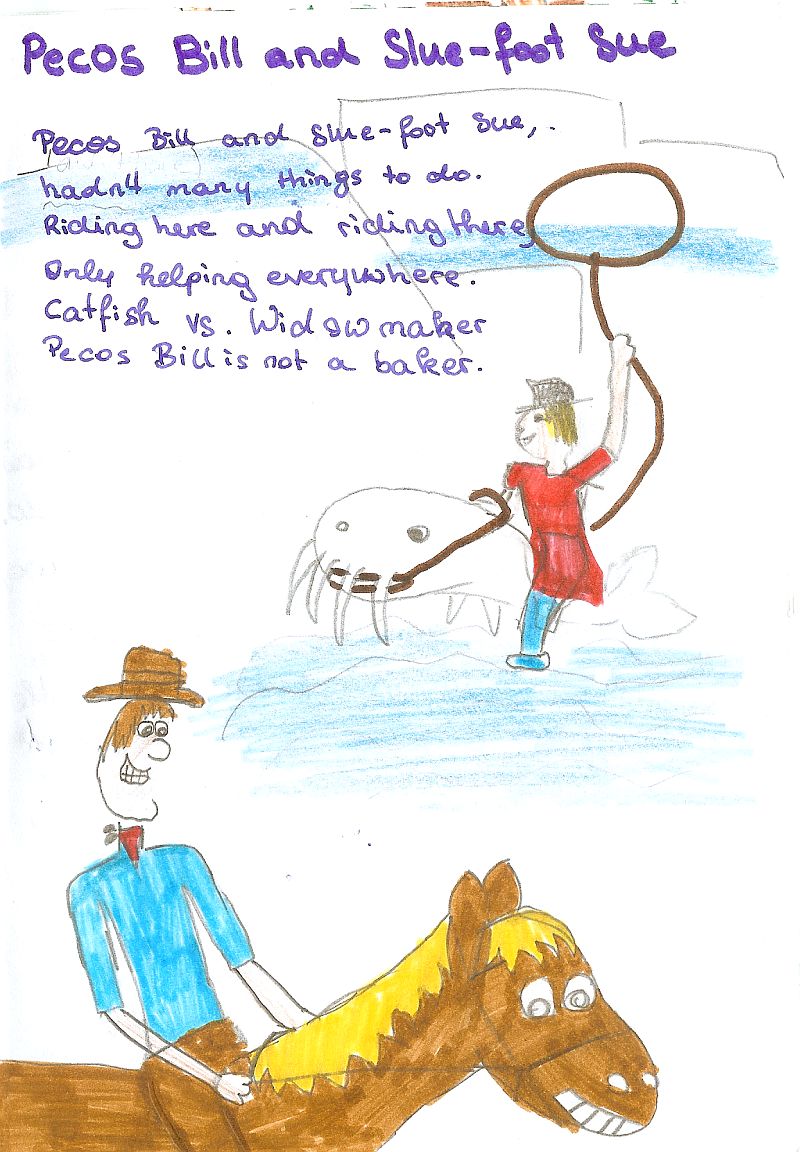 Pecos Bill and Slue-foot Sue
Pecos Bill and Slue-foot Sue,.
hadn4 many things to do.
Riding here and riding there,
Only helping everywhere.
Catfish vs. Widowmaker
Pecos Bill is not a baker.